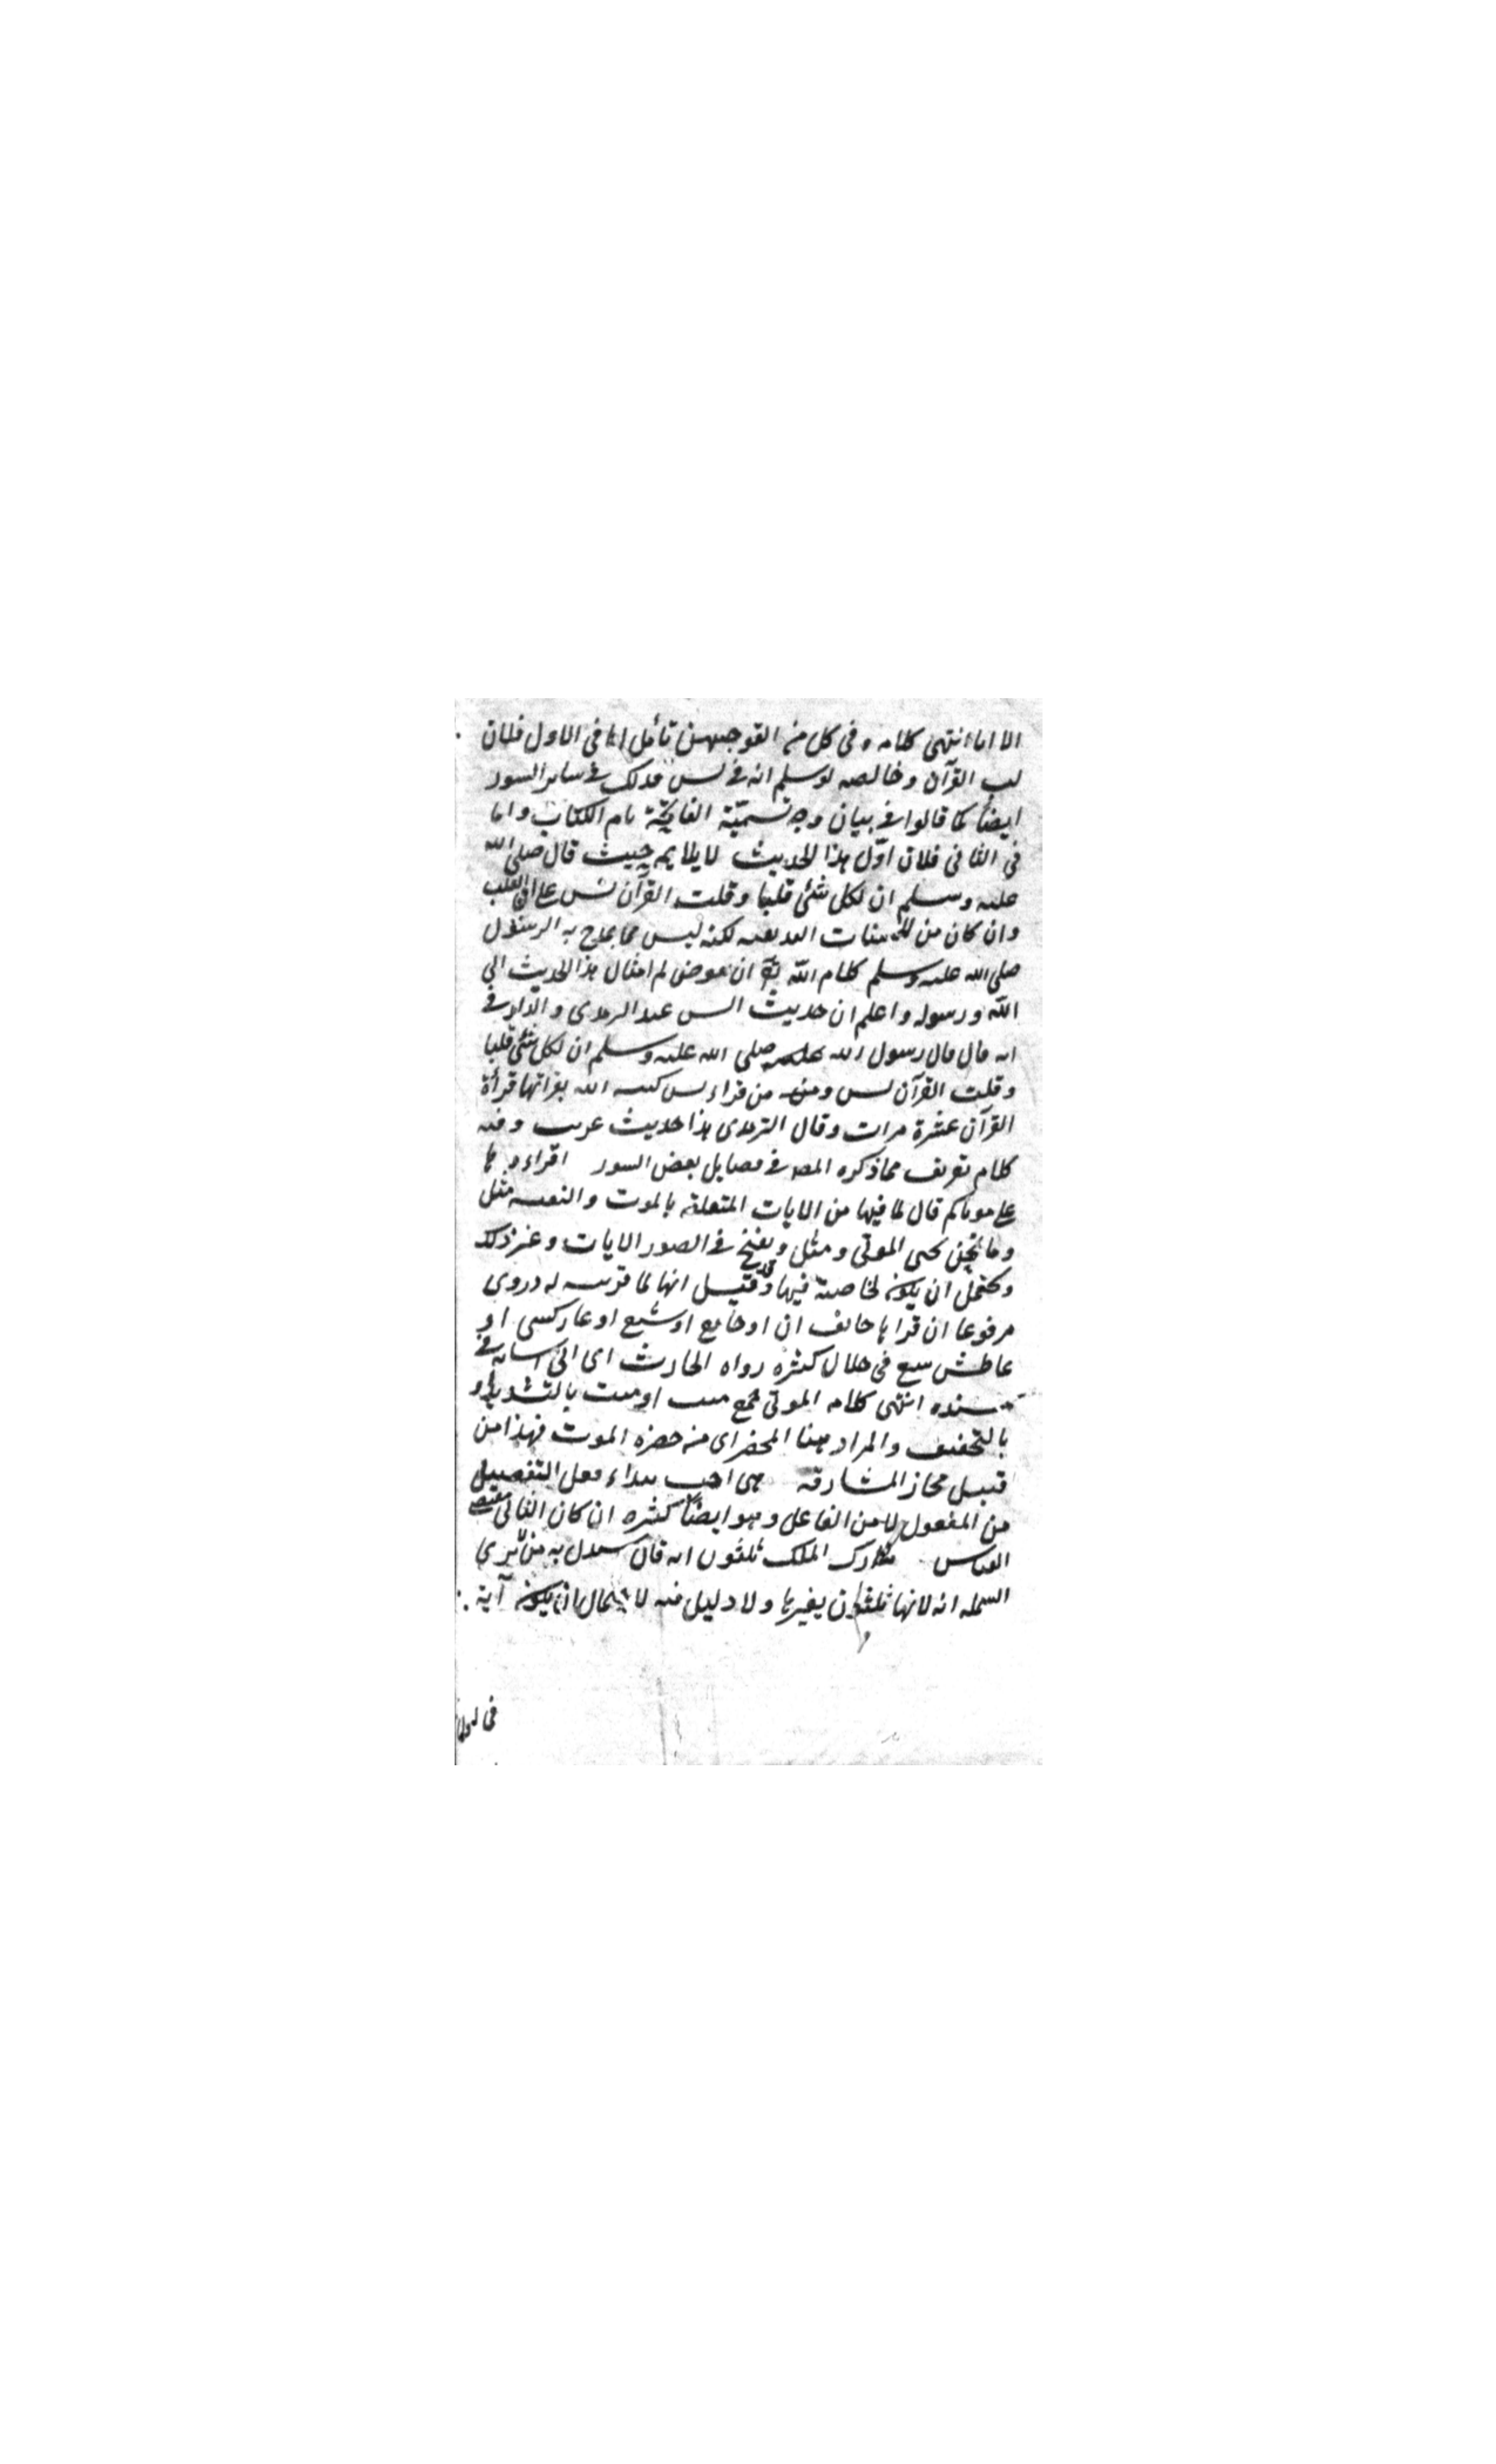 الا اما انتهى كلامه وفى كل من التوجيهين تأمل اما فى الاول فلان
لب القرآن وخالصه لو سلم انه فى يس فذلك فى ساير السور
ايضا كما قالوا فى بيان وجه تسمية الفاتحة بام الكتاب واما
فى الثانى فلان اول هذا الحديث لا يلايمه حيث قال صلى الله
عليه وسلم ان لكل شئ قلبا وقلب القرآن يس على ان القلب
وان كان من البديعيه لكنه ليس مما يمدح به الرسول
صلى الله عليه وسلم كلام الله ان عوض لم امثال هذا الحديث الى
الله ورسوله واعلم ان حديث انس عند الترمذى والدارمى
انه قال قال رسول الله صلى الله عليه وسلم ان لكل شئ قلبا
وقلب القرآن يس ومن من قراء يس كتب الله بقرائتها قرأة
القرآن عشرة مرات وقال الترمذى هذا حديث غريب وفيه
كلام تعرف مما ذكره المصـ فى فضايل بعض السور اقراءوها
على موتاكم قال لما فيها من الايات المتعلقة بالموت والبعث مثل
وما نحن نحيى الموتى ومثل ونفخ فى الصور الايات وغير ذلك
ويحتمل ان يكون لخاصية فيها وقيل انها لما قرئت له وروى
مرفوعا ان قراها خائف امن او جايع او شبع او عار كسى او
عاطش سقى فى خلال كثيره رواه الحارث ابن ابى اسامه فى
مسنده انتهى كلامه الموتى جمع ميت او ميت بالتشديد و
بالتخفيف والمراد هنا المحضر اى من حضره الموت فهذا من
قبيل مجاز المشارفه هى احب بناء فعل التفضيل
من المفعول لا من الفاعل وهو ايضا كثيره ان كان الثانى مقتضى
القياس تبارك الملك ثلثون انه قال يستدل به من يرى
البسمله انه لانها ثلثون بغيرها ولا دليل فيه لاحتمال ان يكون آية